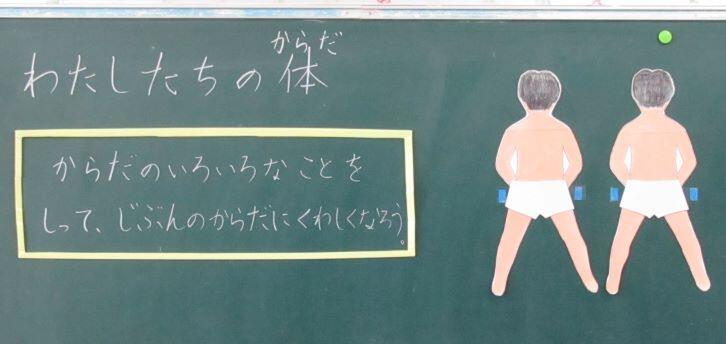 わたしたちの体
からだ
からだのいろいろなことを
しって、じぶんのからだにくわしくなろう。